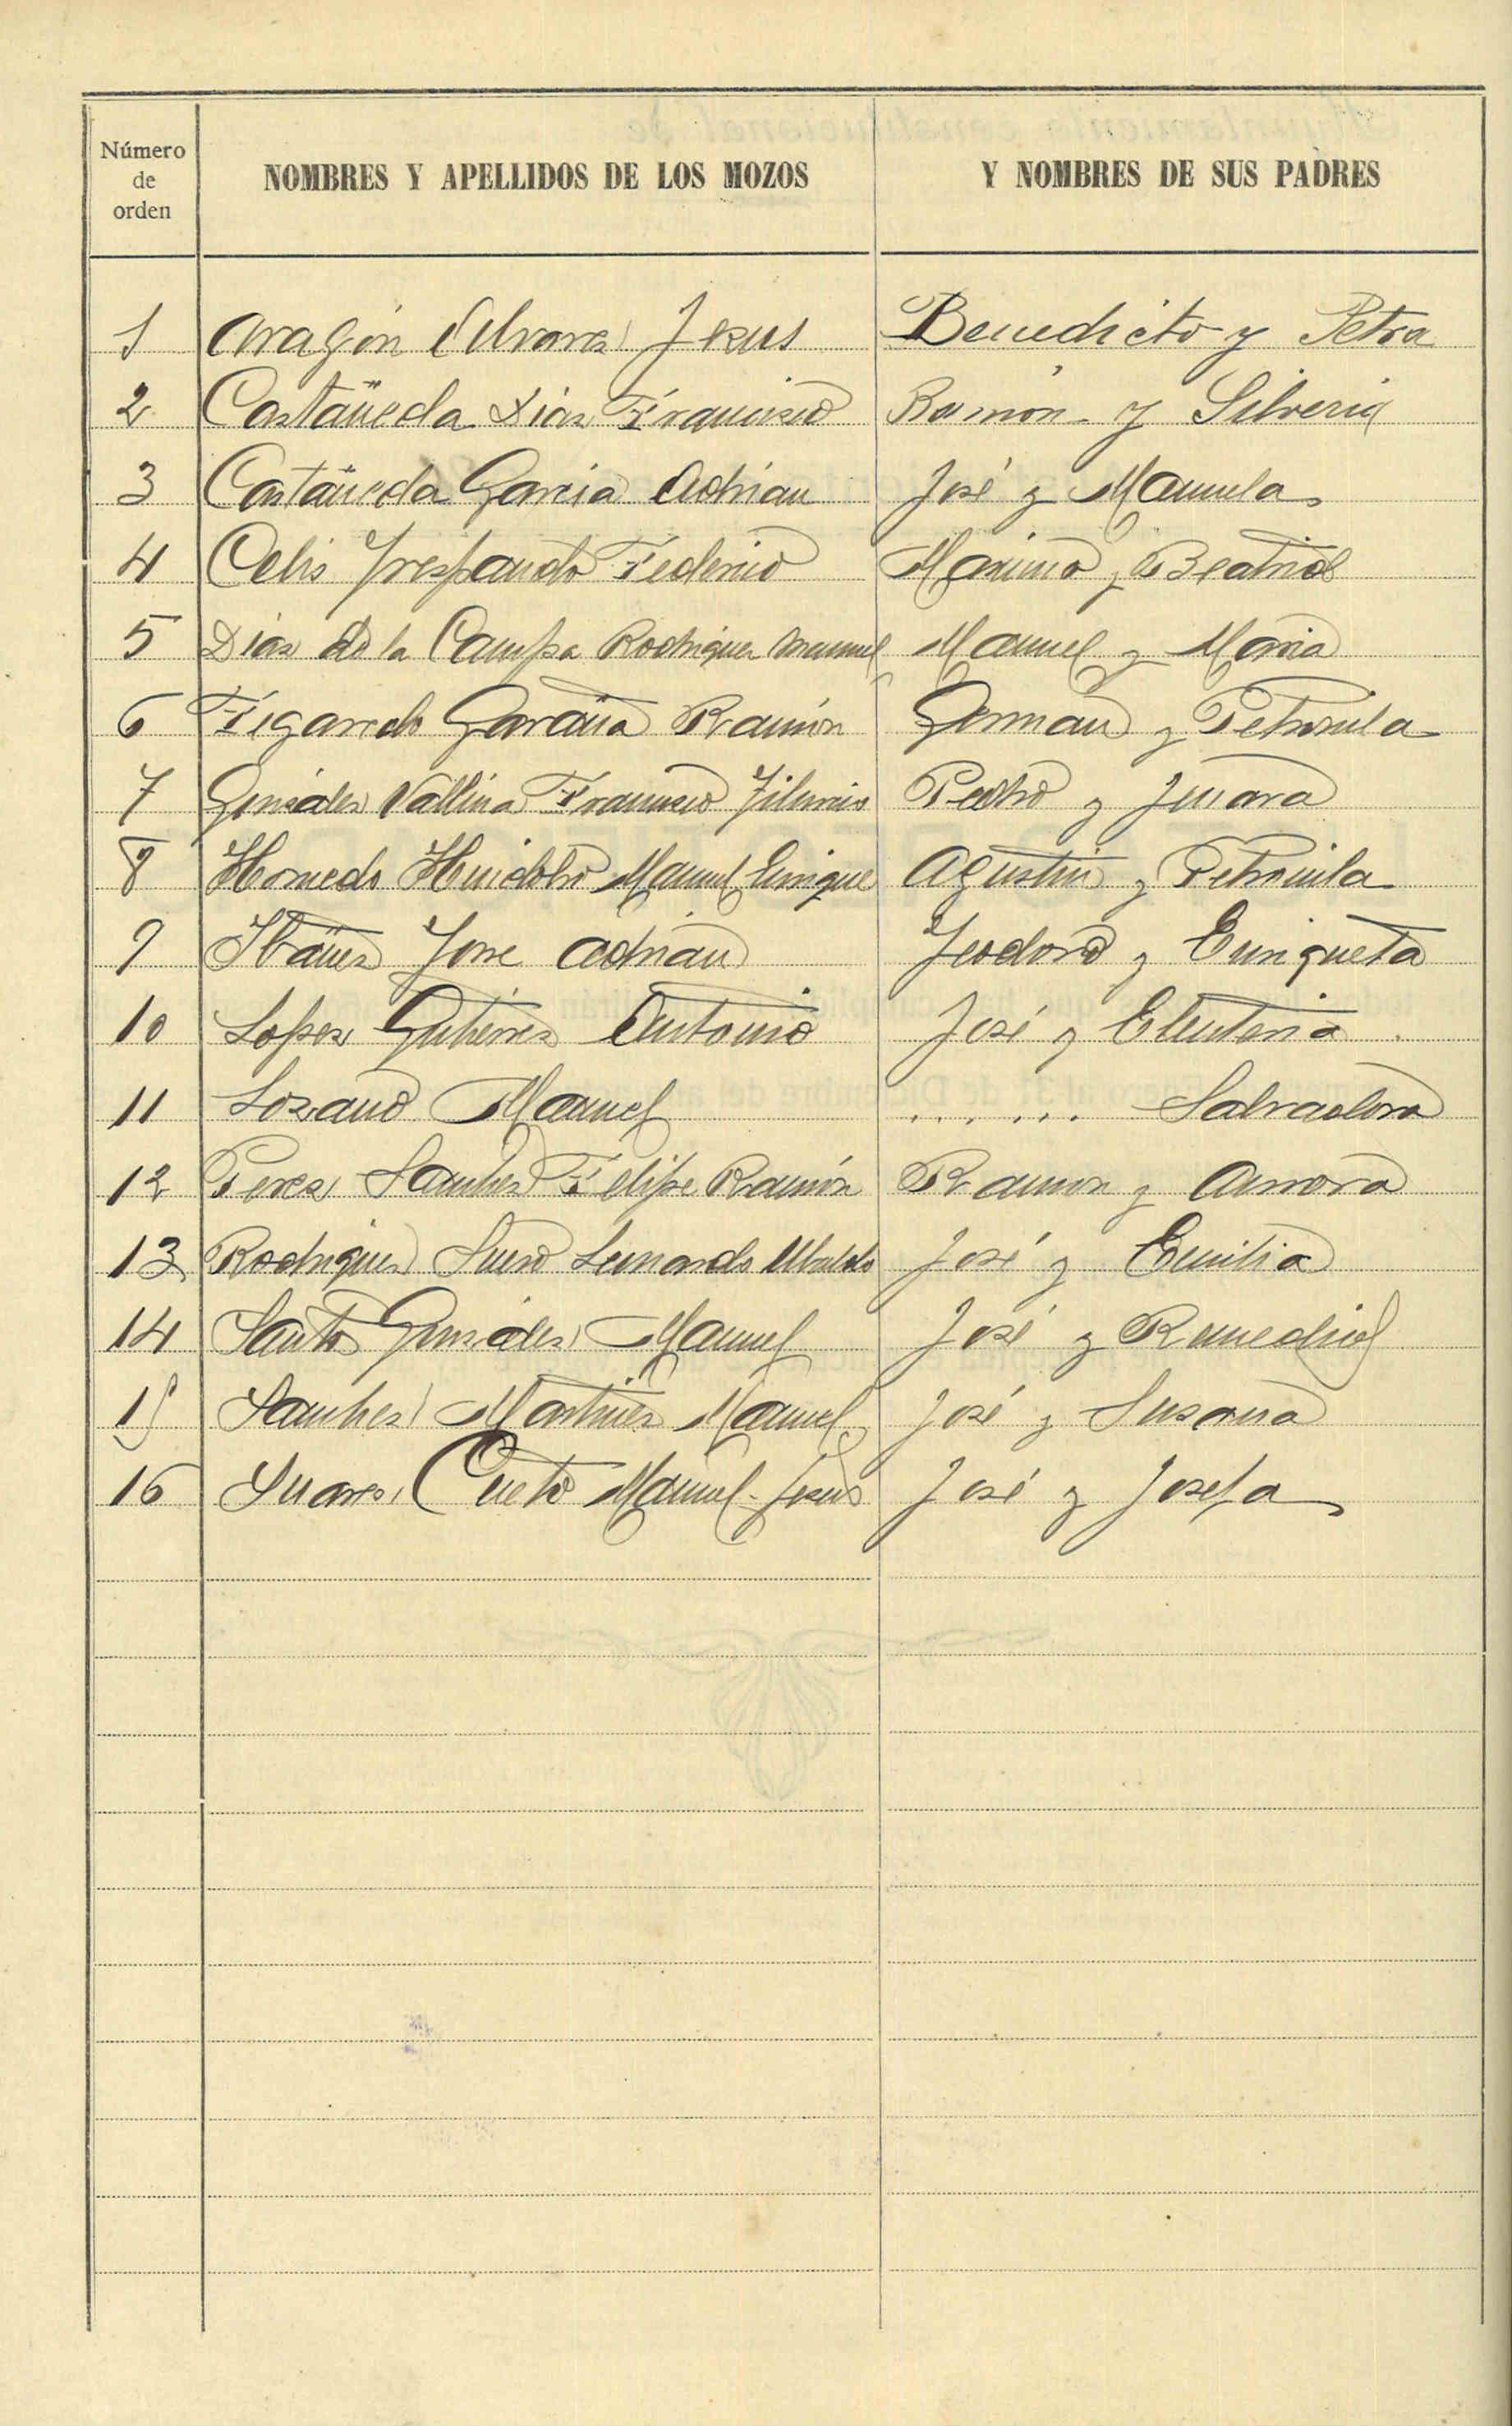 Número de orden
NOMBRES Y APELLIDOS DE LOS MOZOS
Y NOMBRES DE SUS PADRES
1 Aragón Alvarez Jesus Benedicto y Petra
2 Castañeda Diaz Francisco Ramón y Silveria
3 Castañeda Garcia Adrian José y Manuela
4 Celis Federico Maximo y Beatriz
5 Diaz de la Campa Rodriguez Manuel Manuel y Maria
6 Figaredo Ramón German y Petronila
7 Gonzalez Vallina Francisco Pedro y
8 Hornedo Huidobro Manuel Enrique Agustin y Petronila
9 Ibañez Jose Adrian Teodoro y Enriqueta
10 Lopez Gutierrez Antonio José y Eleuteria
11 Lozano Manuel ...... Salvadora
12 Perez Sanchez Felipe Ramón Ramon y Aurora
13 Rodriguez Suero Leonardo Ubaldo José y Emilia
14 Santos Gonzalez Manuel José y Remedios
15 Sanchez Martinez Manuel José y Susana
16 Suarez Cueto Manuel-Jesus José y Josefa